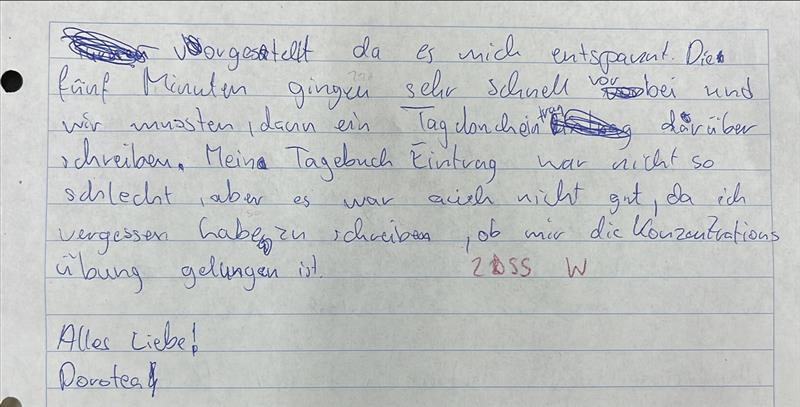 vorgestellt da es mich entspannt. Die
fünf Minuten gingen sehr schnell vorbei und
wir mussten, dann ein darüber
schreiben. Mein Tagebuch Eintrag war nicht so
schlecht, aber es war auch nicht gut, da ich
vergessen habe zu schreiben, ob mir die Konzentrations
übung gelungen ist. SS W
Alles Liebe!
Dorotea